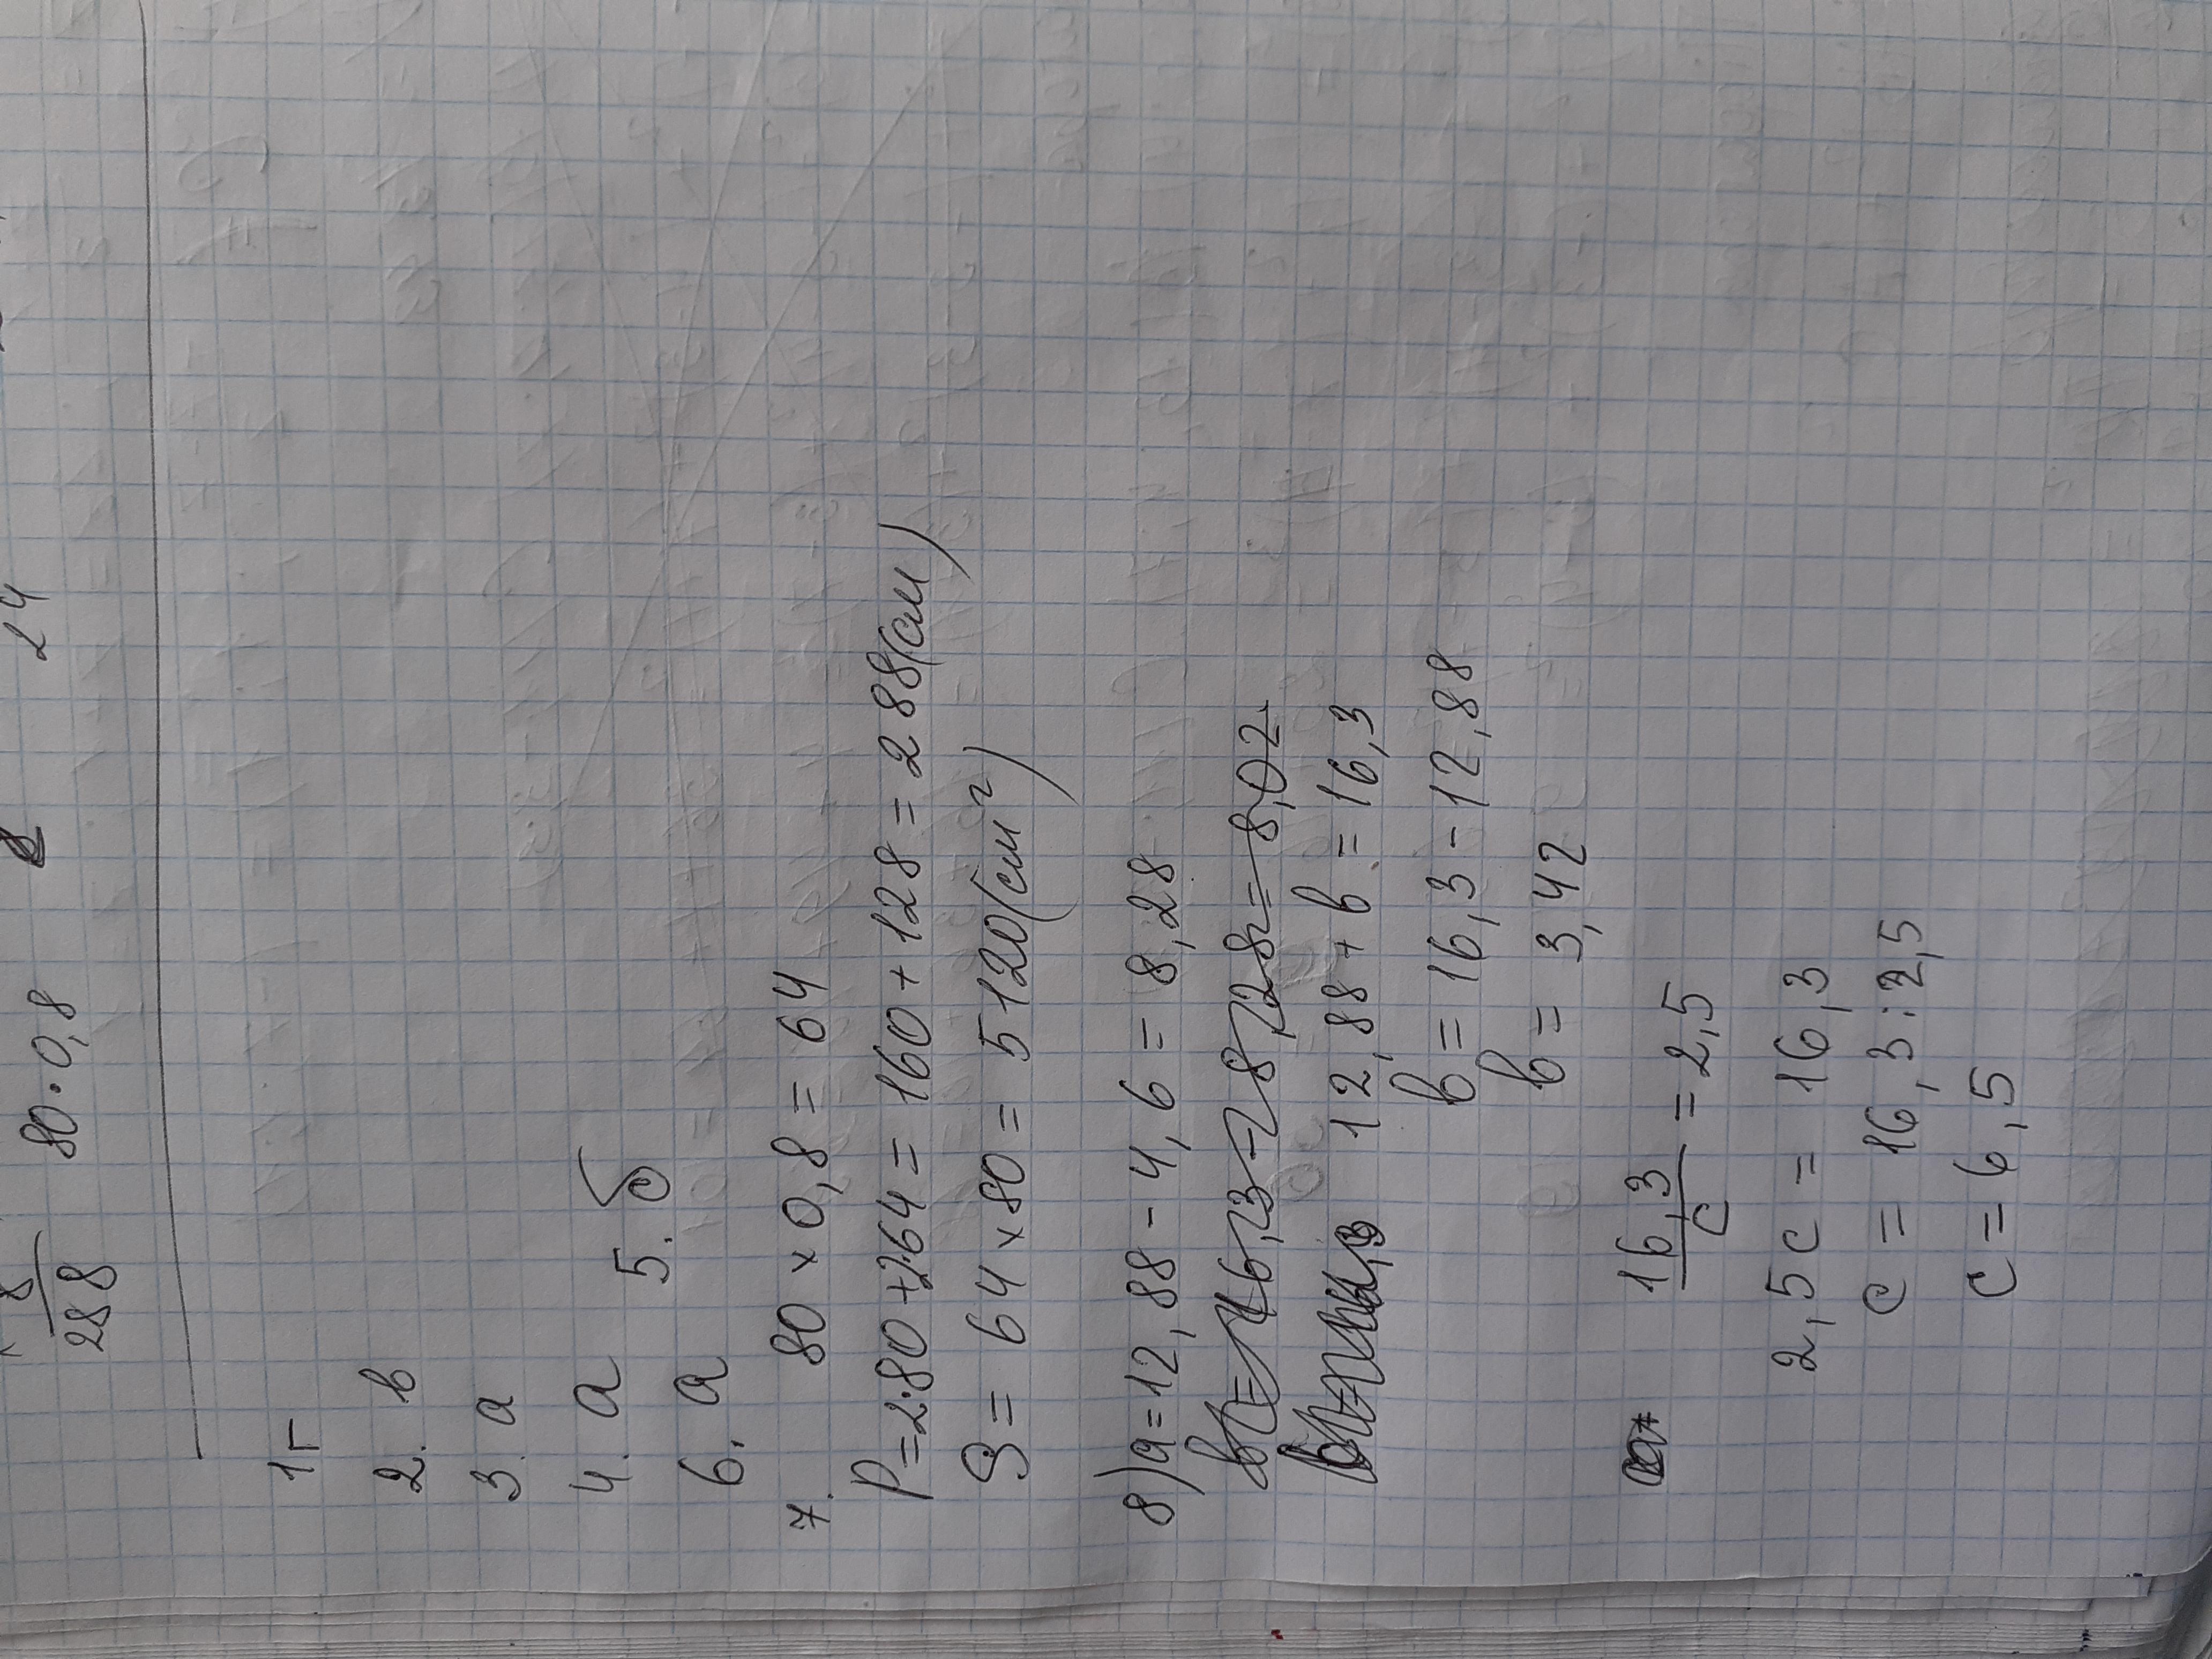 24
8
80 · 0,8
288
1 г
2. в
3. а
4. а 5. б
6. а
7. 80 × 0,8 = 64
P = 2·80 + 2·64 = 160 + 128 = 288 (см)
S = 64 × 80 = 5120 (см²)
8) а = 12,88 - 4,6 = 8,28
в = 16,3 - 8,28 = 8,02
12,88 + в = 16,3
в = 16,3 - 12,88
в = 3,42
16,3/с = 2,5
2,5с = 16,3
с = 16,3 : 2,5
с = 6,5